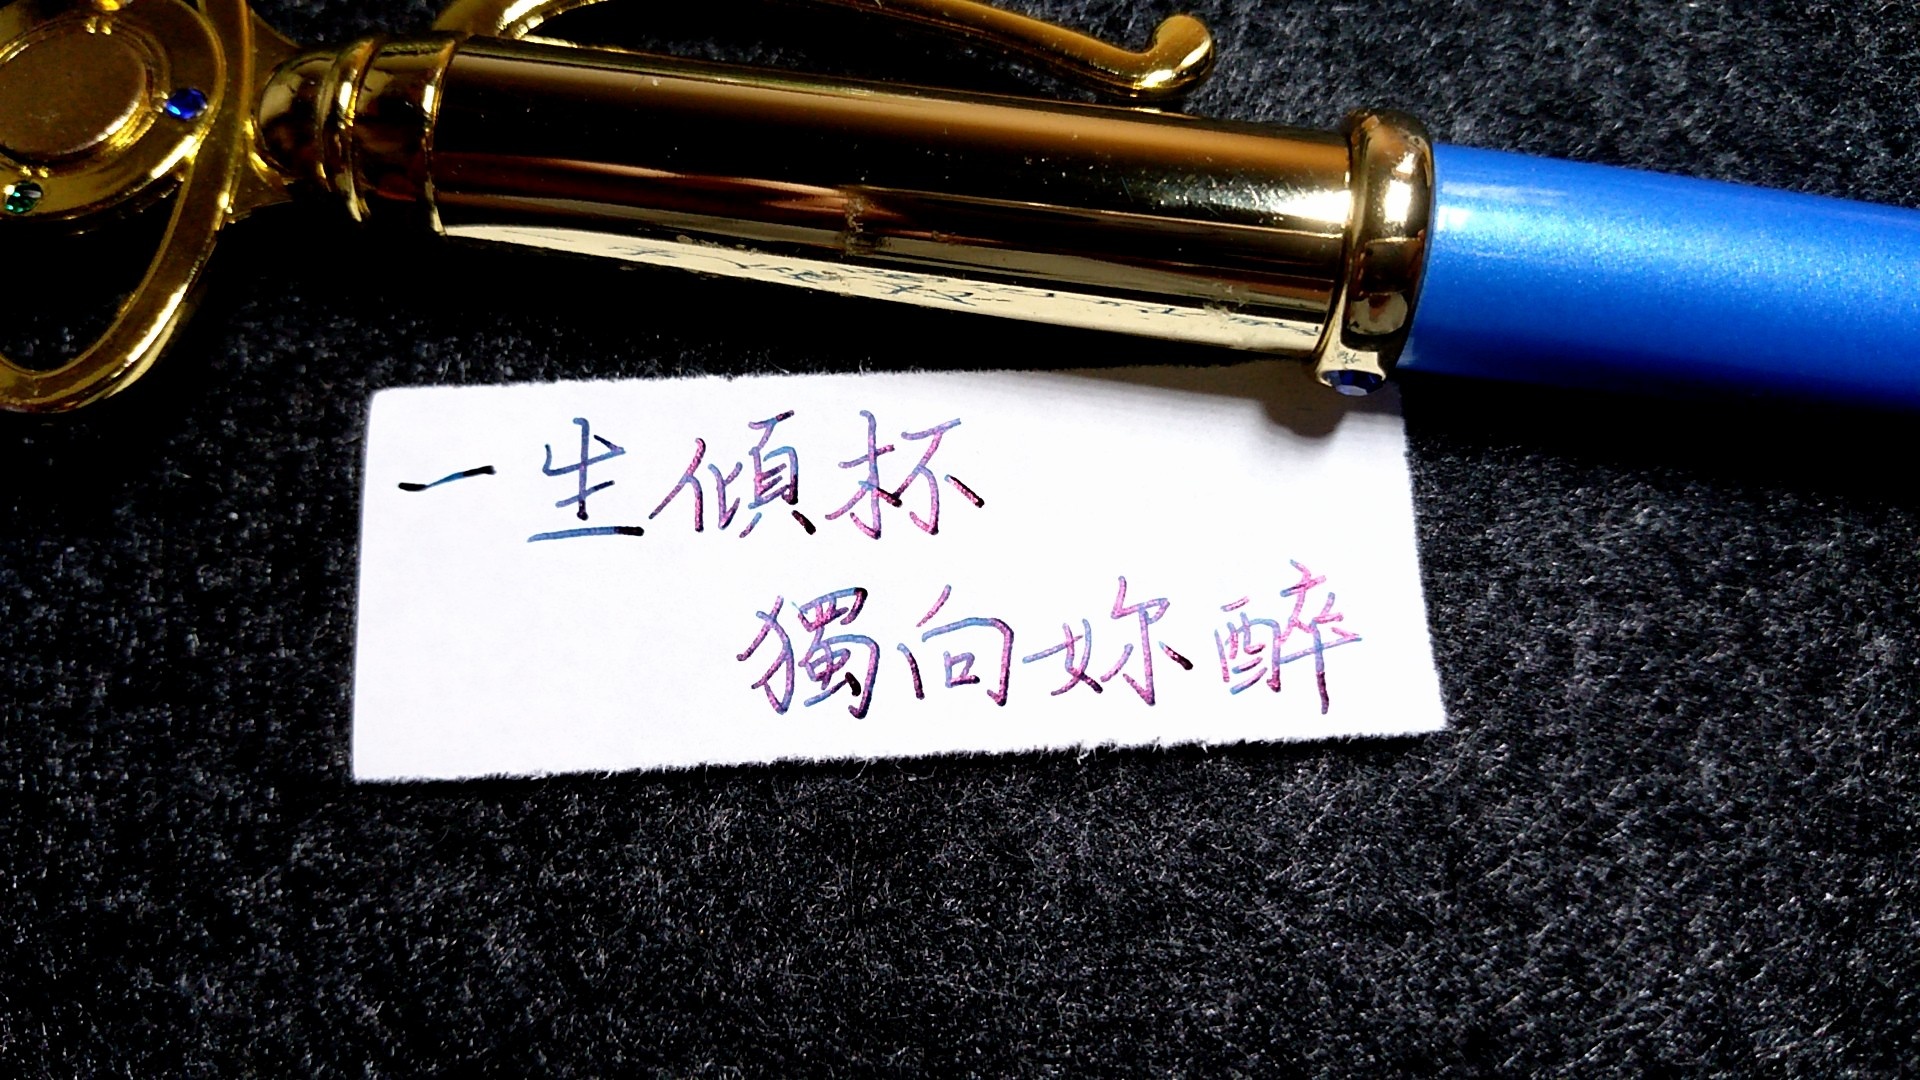 一生傾杯
獨向妳醉